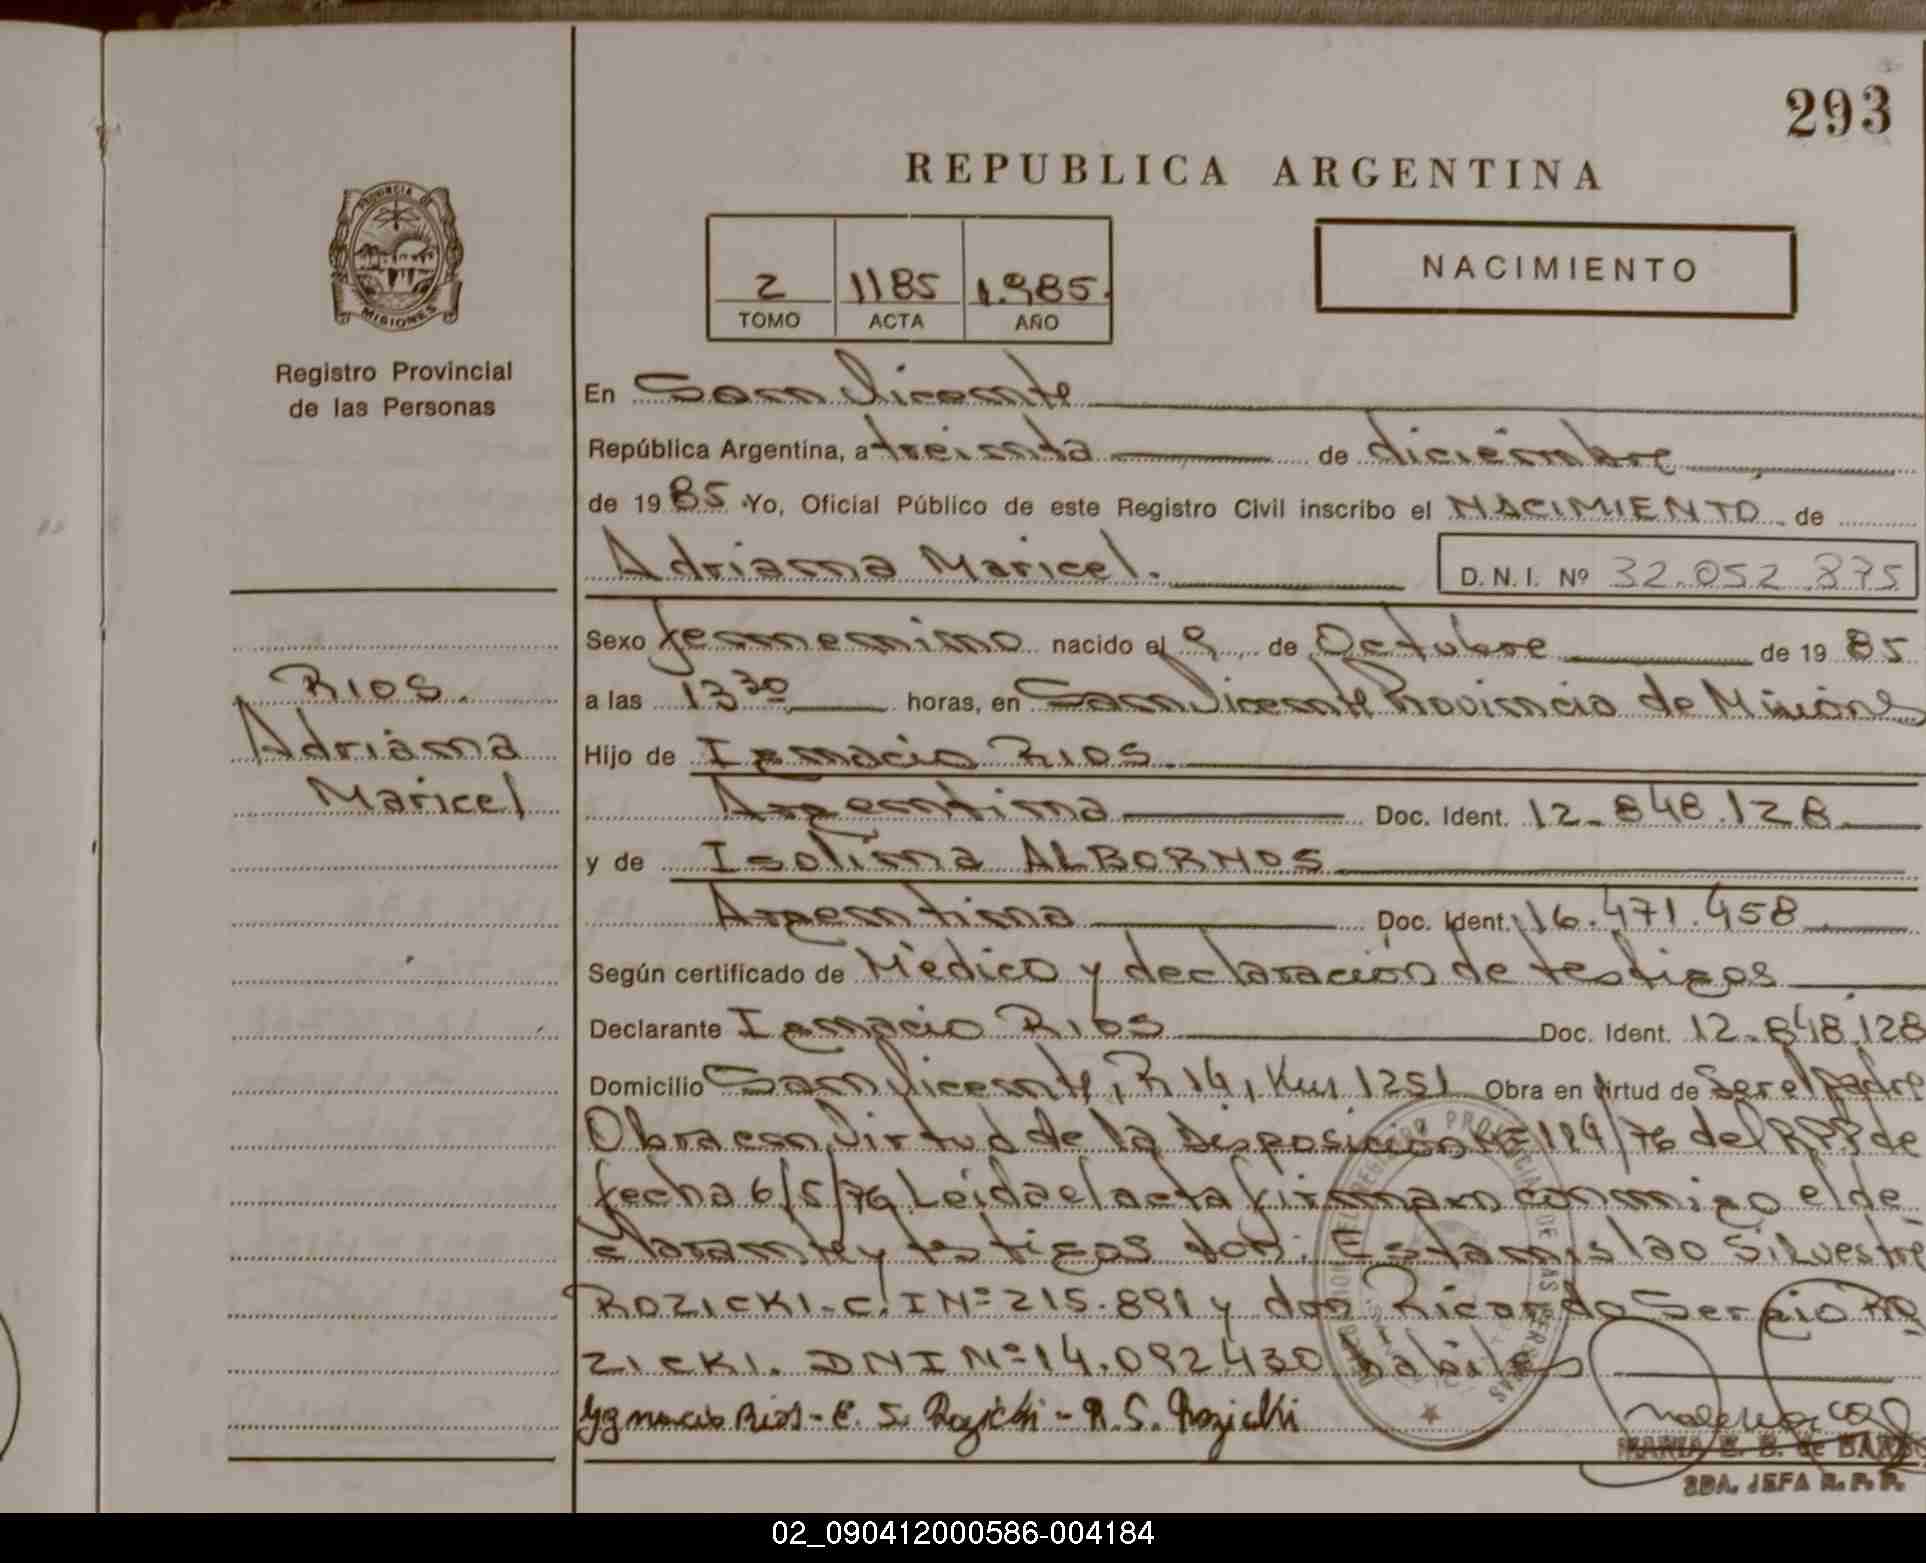 293
REPUBLICA ARGENTINA
PROVINCIA DE
MISIONES
Registro Provincial
de las Personas
2 1185 1.985.
TOMO ACTA AÑO
NACIMIENTO
En San Vicente
República Argentina, a treinta de diciembre
de 1985 Yo, Oficial Público de este Registro Civil inscribo el NACIMIENTO de
Adriana Maricel.
D.N.I. Nº 32.052.875
Sexo femenino nacido el 9 de Octubre de 1985
a las 13 30 horas, en San Vicente Provincia de Misiones
Hijo de Ignacio RIOS.
Argentina Doc. Ident. 12.848.128
y de Isolina ALBORNOS
Argentina Doc. Ident. 16.471.458
Según certificado de Médico y declaración de testigos
Declarante Ignacio Rios Doc. Ident. 12.848.128
Domicilio San Vicente, R 14, Km 1251 Obra en virtud de Ser el padre
Obra en Virtud de la Disposición Nº 194/76 del RPP de
fecha 6/5/76 Leída el acta firman conmigo el de
clarante y testigos don: Estanislao Silvestre
ROZICKI. C.I Nº 215.891 y don Ricardo Sergio Ro
ZICKI. DNI Nº 14.092.430 habiles
Ygnacio Rios - E. S. Rozicki - R. S. Rozicki
MARIA E. B. de
SDA. JEFA R.P.P.
RIOS.
Adriana
Maricel
02_090412000586-004184